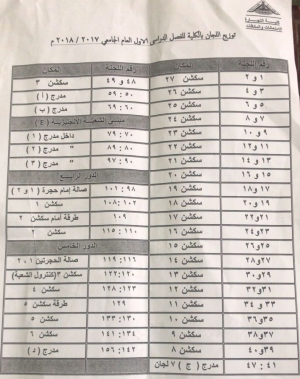 توزيع اللجان بالكلية للفصل الدراسى الاول العام الجامعي ٢٠١٧ / ٢٠١٨ م
رقم اللجنة المكان
١ و ٢ سكشن ٢٧
٣ و ٤ سكشن ٢٦
٥ و ٦ سكشن ٢٥
٧ و ٨ سكشن ٢٤
٩ و ١٠ سكشن ٢٣
١١ و ١٢ سكشن ٢٢
١٣ و ١٤ سكشن ٢١
١٥ و ١٦ سكشن ٢٠
١٧ و ١٨ سكشن ١٩
١٩ و ٢٠ سكشن ١٨
٢١ و ٢٢ سكشن ١٧
٢٣ و ٢٤ سكشن ١٦
٢٥ و ٢٦ سكشن ١٥
٢٧ و ٢٨ سكشن ١٤
٢٩ و ٣٠ سكشن ١٣
٣١ و ٣٢ سكشن ١٢
٣٣ و ٣٤ سكشن ١١
٣٥ و ٣٦ سكشن ١٠
٣٧ و ٣٨ سكشن ٩
٣٩ و ٤٠ سكشن ٨
٤١ : ٤٧ مدرج ( ج ) ٧ لجان
رقم اللجنة المكان
٤٨ و ٤٩ سكشن ٣
٥٠ : ٥٩ مدرج ( أ )
٦٠ : ٦٩ مدرج ( ب )
مبنى الشعبة الانجليزية
٧٠ : ٧٩ داخل مدرج ( ١ )
٨٠ : ٨٩ " مدرج ( ٢ )
٩٠ : ٩٧ " مدرج ( ٣ )
الدور الرابع
٩٨ : ١٠١ صالة امام حجرة ( ١ و ٢ )
١٠٢ : ١٠٨ سكشن ١
١٠٩ طرقة أمام سكشن ١
١١٠ : ١١٥ سكشن ٢
الدور الخامس
١١٦ : ١١٩ صالة الحجرتين ١ و ٢
١٢٠ : ١٢٢ سكشن ٣ (كنترول الشعبة)
١٢٣ : ١٢٨ سكشن ٤
١٢٩ طرقة سكشن ٥
١٣٠ : ١٣٣ سكشن ٥
١٣٤ : ١٤١ سكشن ٦
١٤٢ : ١٥٦ مدرج ( د )